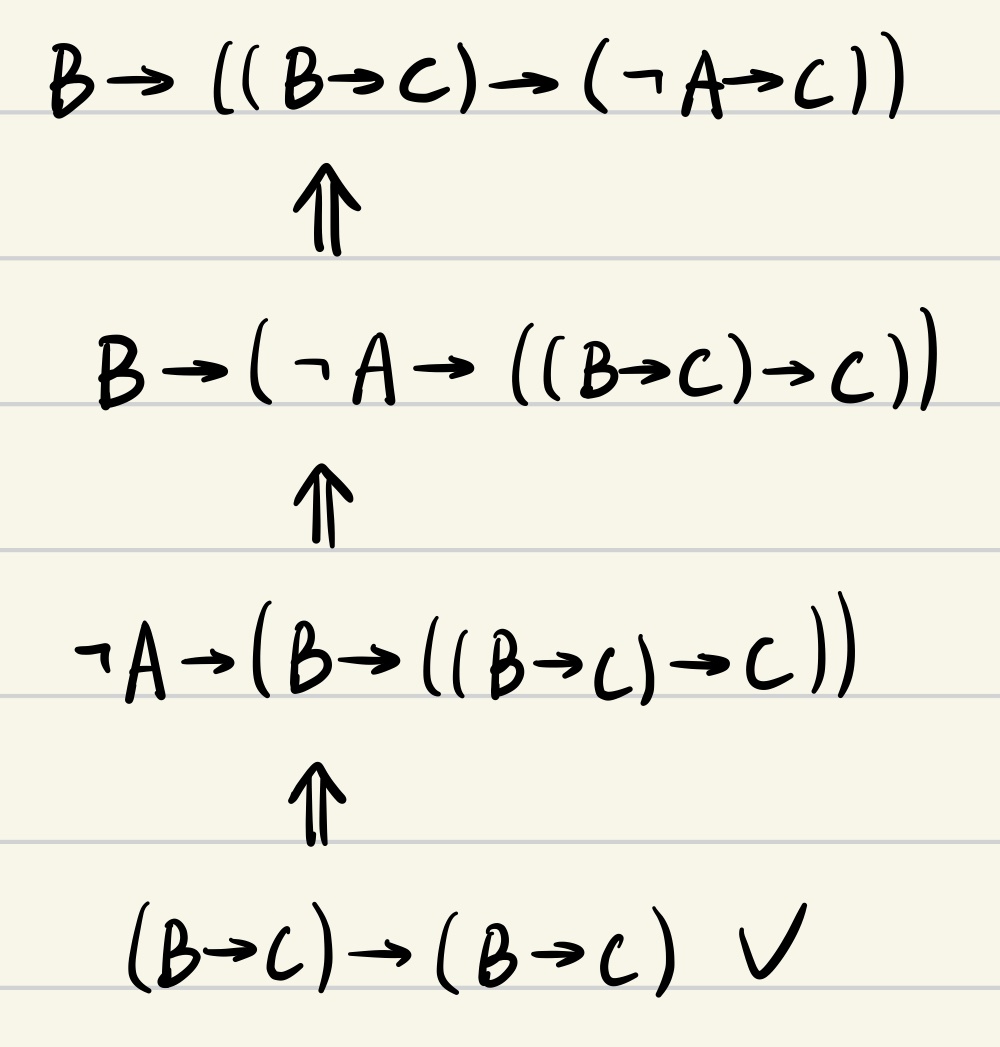 B→((B→C)→(¬A→C))
⇑
B→(¬A→((B→C)→C))
⇑
¬A→(B→((B→C)→C))
⇑
(B→C)→(B→C) ✓